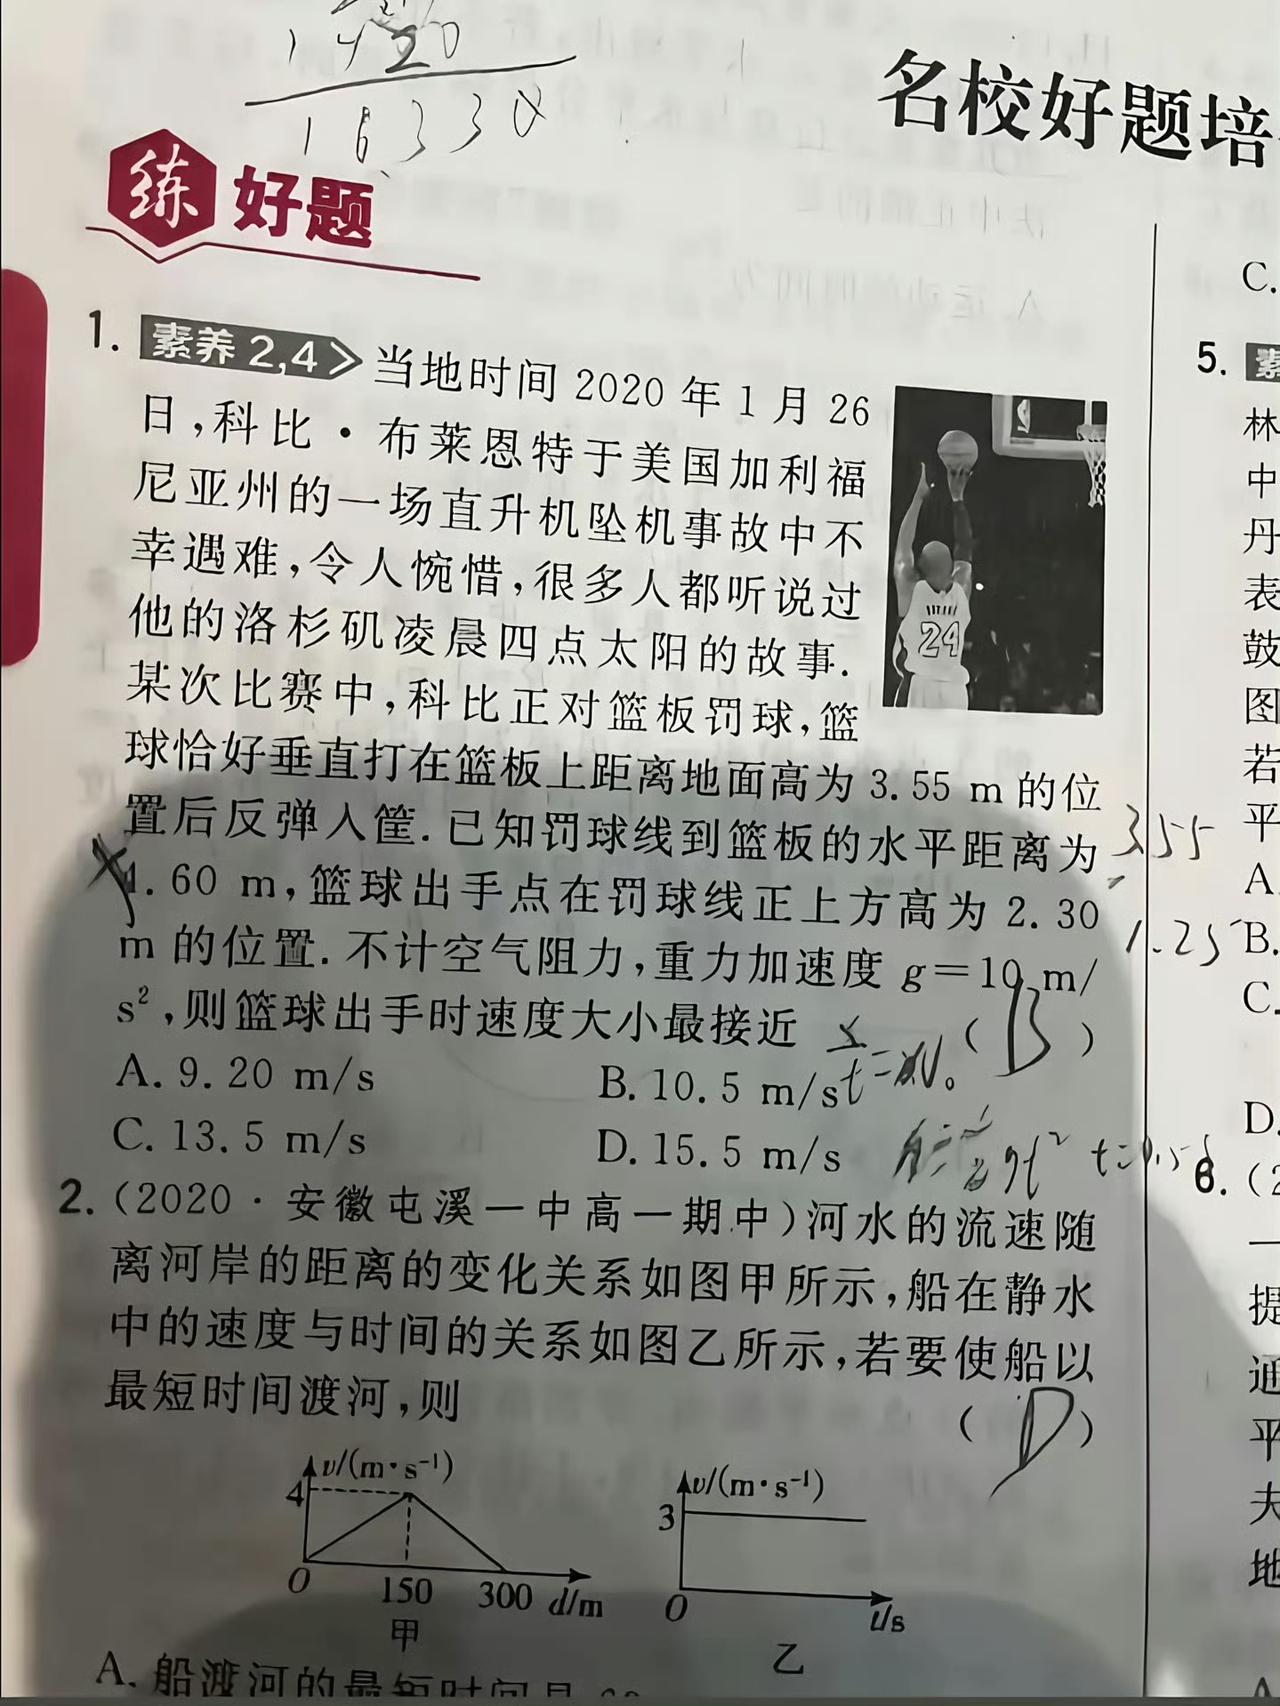 1420
16330
名校好题培
练 好题
1. 素养 2,4 当地时间 2020 年 1 月 26
日,科比·布莱恩特于美国加利福
尼亚州的一场直升机坠机事故中不
幸遇难,令人惋惜,很多人都听说过
他的洛杉矶凌晨四点太阳的故事.
某次比赛中,科比正对篮板罚球,篮
球恰好垂直打在篮板上距离地面高为 3.55 m 的位
置后反弹入筐.已知罚球线到篮板的水平距离为
4.60 m,篮球出手点在罚球线正上方高为 2.30
m 的位置.不计空气阻力,重力加速度 g=10 m/
s²,则篮球出手时速度大小最接近 ( B )
24
3.55
1.25
A. 9.20 m/s B. 10.5 m/s
C. 13.5 m/s D. 15.5 m/s
2. (2020·安徽屯溪一中高一期中)河水的流速随
离河岸的距离的变化关系如图甲所示,船在静水
中的速度与时间的关系如图乙所示,若要使船以
最短时间渡河,则 ( D )
v/(m·s⁻¹)
4
O 150 300 d/m
甲
v/(m·s⁻¹)
3
O t/s
乙
A. 船渡河的最短时间是
C.
5. 素
林
中
丹
表
鼓
图
若
平
A.
B.
C.
D.
6. (2
一
提
通
平
夫
地